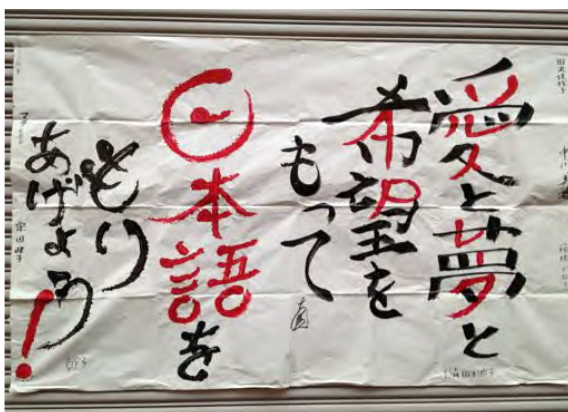 愛と夢と
希望を
もって
日本語を
もり
あげよう!